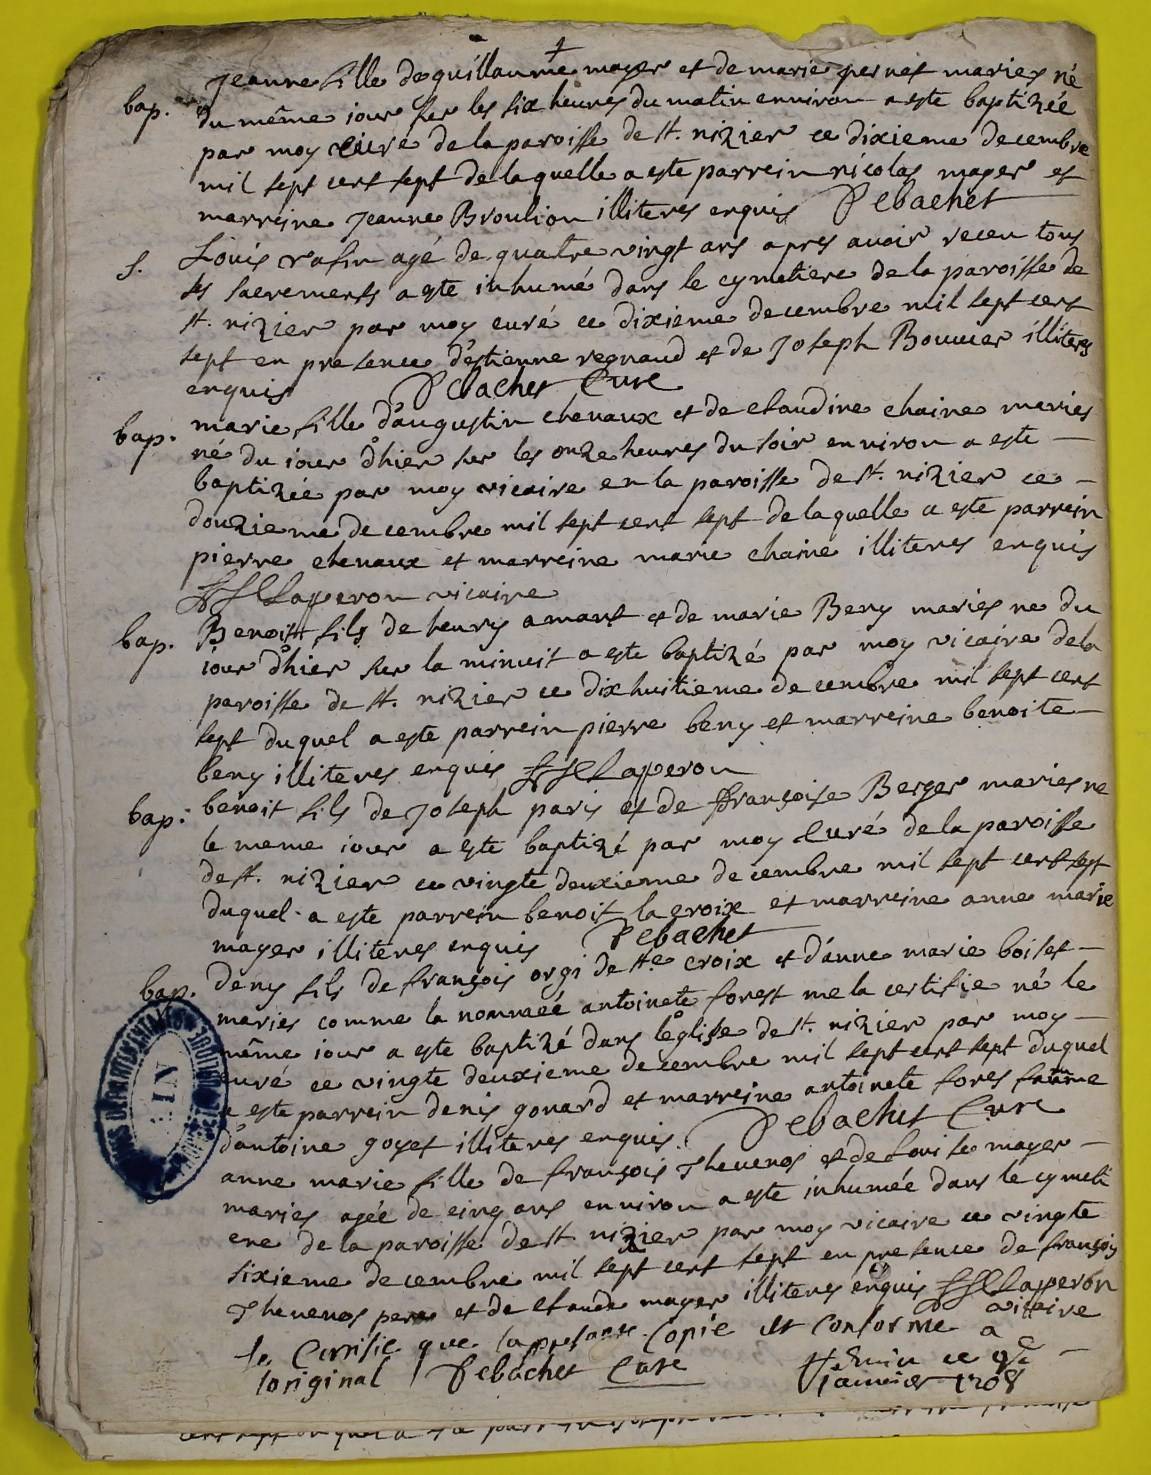 Jeanne fille de guillaume mayer et de marie pernet maries né
bap. du même iour sur les six heures du matin environ a este baptizée
par moy curé de la paroisse de st. nizier ce dixieme decembre
mil sept cent sept de laquelle a este parrein nicolas mayer et
marreine Jeanne Broulion illiteres enquis Debachet
s. Louis rafin agé de quatre vingt ans apres avoir receu tous
ses sacrements a este inhumé dans le cymetiere de la paroisse de
st. nizier par moy curé ce dixieme decembre mil sept cent
sept en presence d'estienne regnaud et de Joseph Bouvier illiteres
enquis Debachet Curé
bap. marie fille d'augustin chevaux et de claudine chaine maries
né du iour d'hier sur les onze heures du soir environ a este
baptizée par moy vicaire en la paroisse de st. nizier ce
douzieme decembre mil sept cent sept de laquelle a este parrein
pierre chevaux et marreine marie chaine illiteres enquis
Laperon vicaire
bap. Benoist fils de henry amant et de marie Beny maries ne du
iour d'hier sur la minuit a este baptizé par moy vicaire de la
paroisse de st. nizier ce dixhuitieme decembre mil sept cent
sept duquel a este parrein pierre beny et marreine benoite
beny illiteres enquis Laperon
bap: benoit fils de Joseph paris et de françoise Berger maries ne
le meme iour a este baptizé par moy Curé de la paroisse
de st. nizier ce vingte deuxieme decembre mil sept cent sept
duquel a este parrein benoit lacroix et marreine anne marie
mayer illiteres enquis Debachet
bap. deny fils de françois orgi de ste croix et d'anne marie boiset
maries comme la nommeé antoinete forest me la certifie né le
même iour a este baptizé dans l'église de st. nizier par moy
curé ce vingte deuxieme decembre mil sept cent sept duquel
a este parrein denis gonard et marreine antoinete fores fame
d'antoine goyet illiteres enquis. Debachet Curé
anne marie fille de françois Thevenos et de Louise mayer
maries agée de cinq ans environ a este inhumée dans le cymeti
ere de la paroisse de st nizier par moy vicaire ce vingte
sixieme decembre mil sept cent sept en presence de françois
Thevenos pere et de claude mayer illiteres enquis Laperon
vicaire
Je Certifie que la presente Copie est conforme a
loriginal Debachet Curé
janvier 1708
AIN